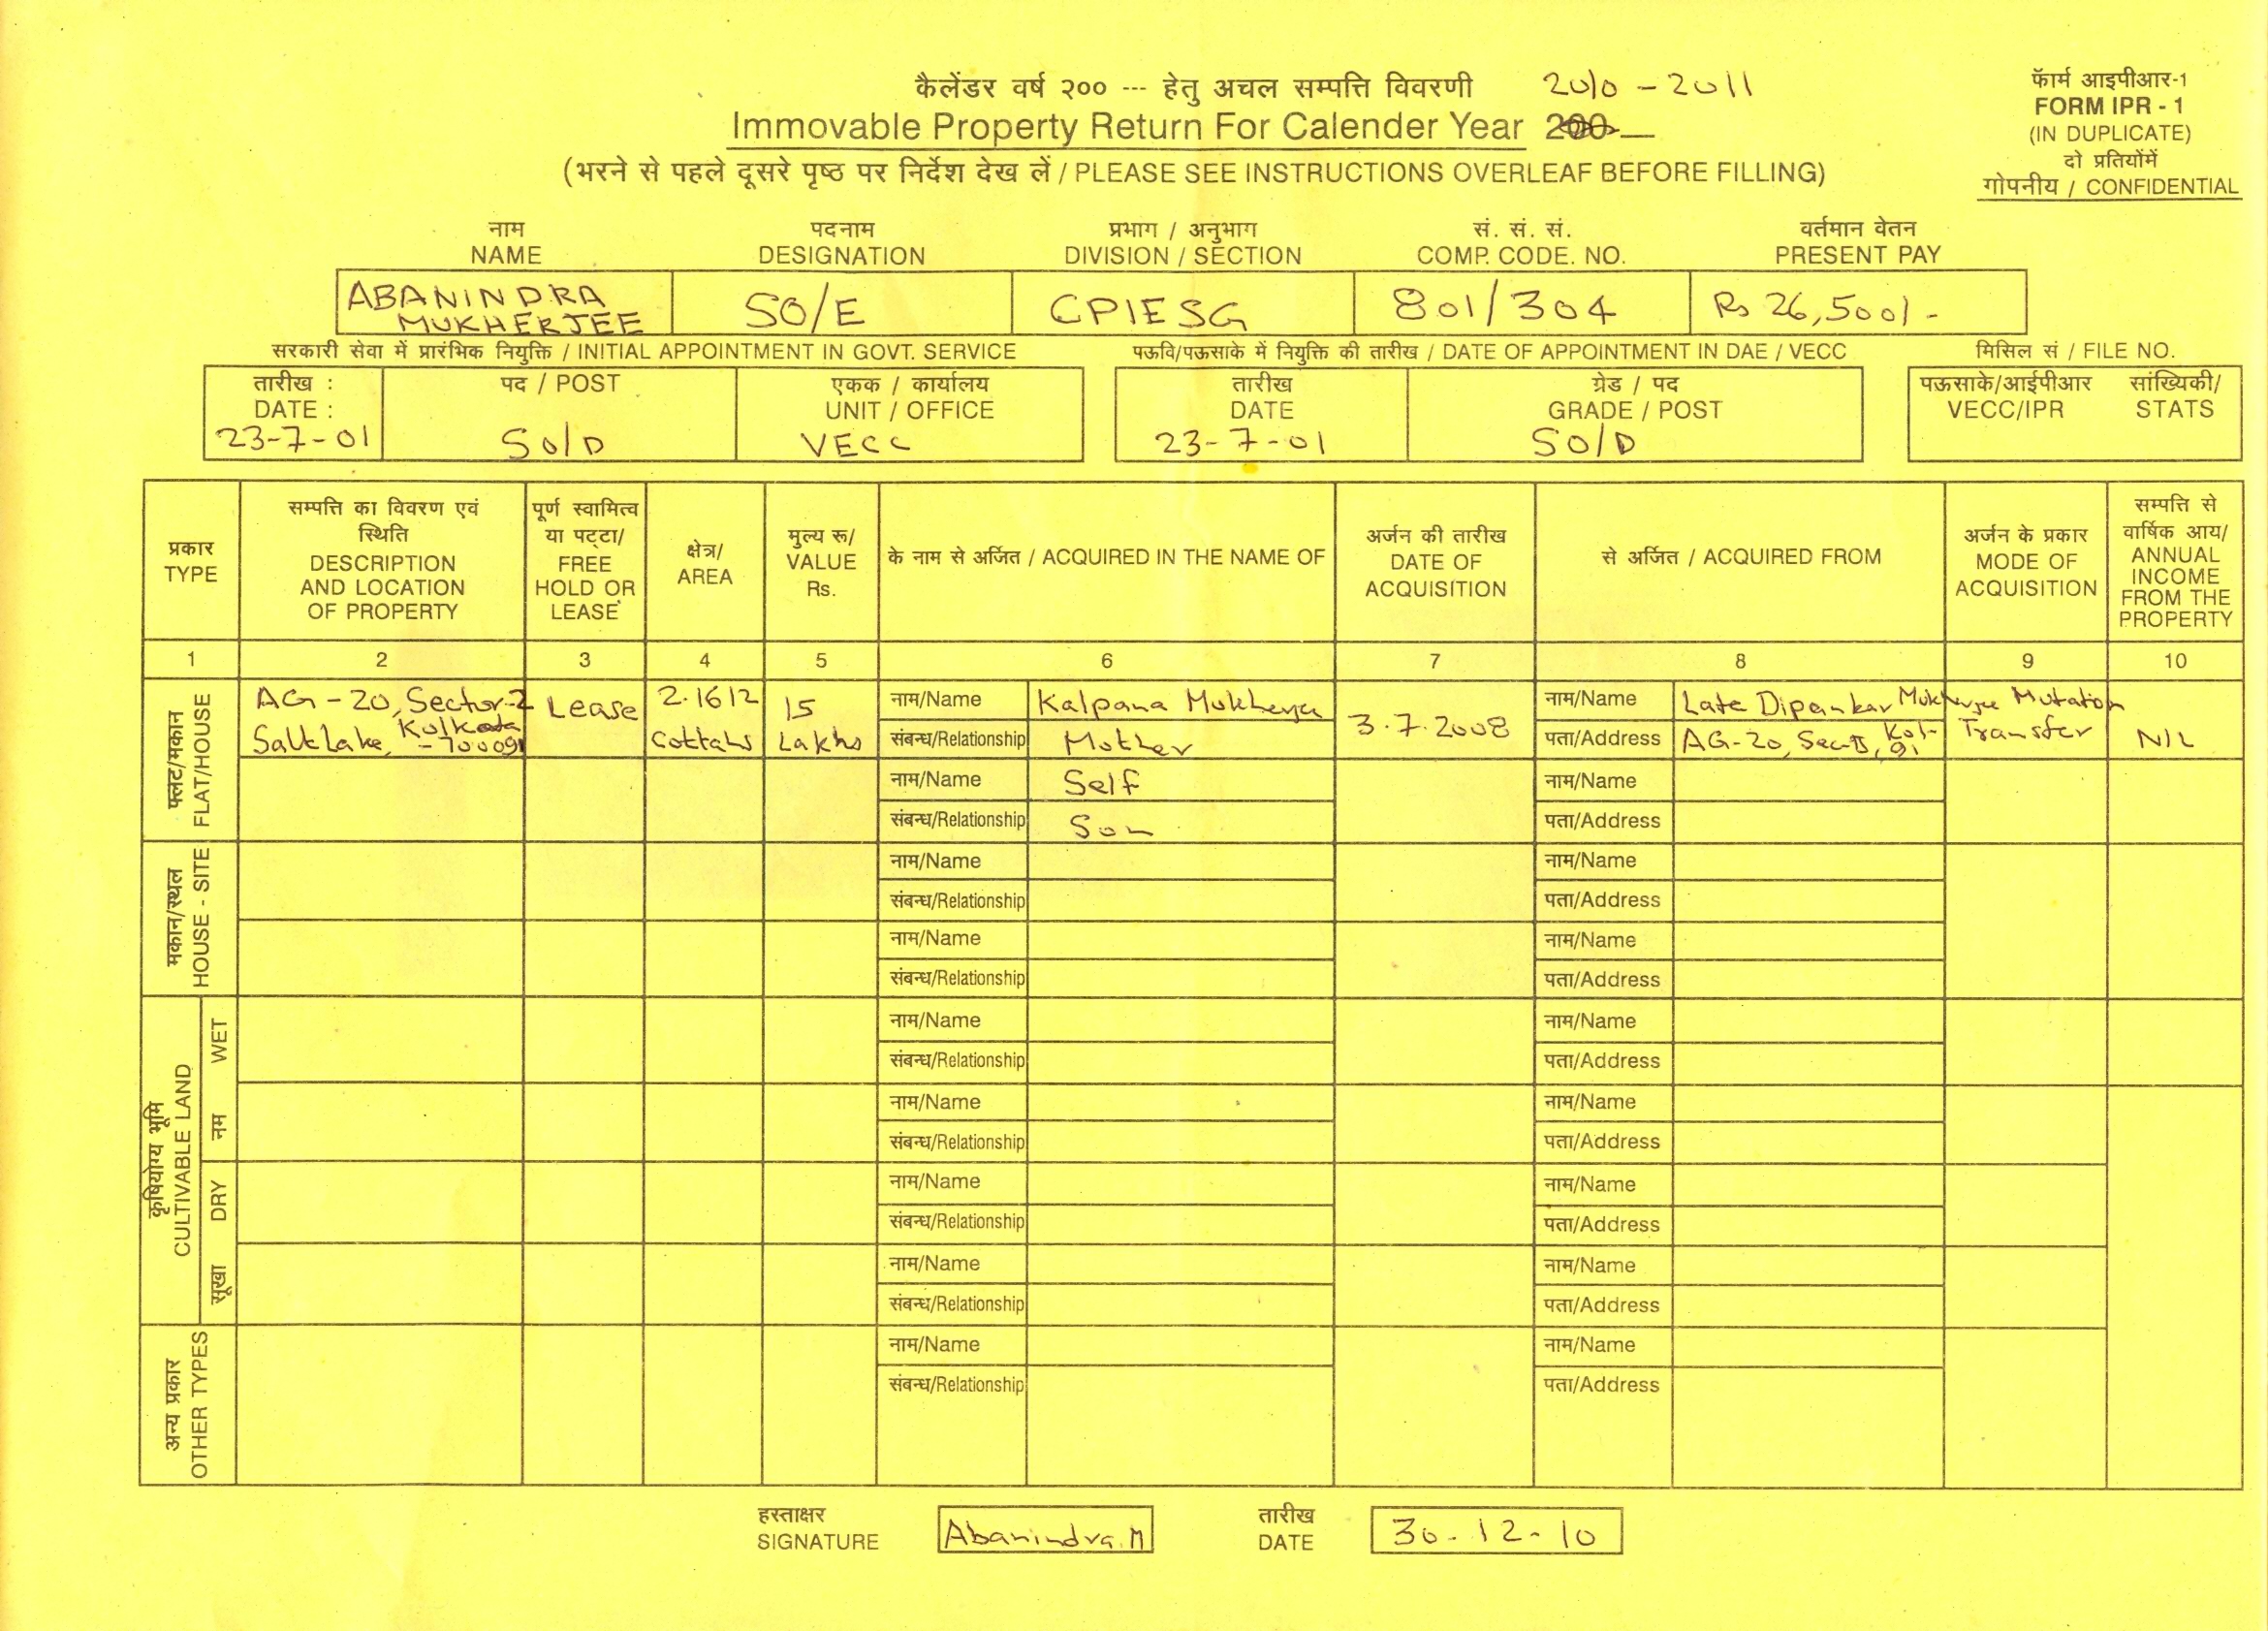 कैलेंडर वर्ष २०० --- हेतु अचल सम्पत्ति विवरणी 2010 - 2011
Immovable Property Return For Calender Year 200
(भरने से पहले दूसरे पृष्ठ पर निर्देश देख लें / PLEASE SEE INSTRUCTIONS OVERLEAF BEFORE FILLING)
फॅार्म आइपीआर-1
FORM IPR - 1
(IN DUPLICATE)
दो प्रतियोंमें
गोपनीय / CONFIDENTIAL
नाम पदनाम प्रभाग / अनुभाग सं. सं. सं. वर्तमान वेतन
NAME DESIGNATION DIVISION / SECTION COMP. CODE. NO. PRESENT PAY
ABANINDRA MUKHERJEE SO/E CPIESG 801/304 Rs 26,500/-
सरकारी सेवा में प्रारंभिक नियुक्ति / INITIAL APPOINTMENT IN GOVT. SERVICE पऊवि/पऊसाके में नियुक्ति की तारीख / DATE OF APPOINTMENT IN DAE / VECC मिसिल सं / FILE NO.
तारीख : पद / POST एकक / कार्यालय तारीख ग्रेड / पद पऊसाके/आईपीआर सांख्यिकी/
DATE : UNIT / OFFICE DATE GRADE / POST VECC/IPR STATS
23-7-01 SO/D VECC 23-7-01 SO/D
प्रकार
TYPE
सम्पत्ति का विवरण एवं
स्थिति
DESCRIPTION
AND LOCATION
OF PROPERTY
पूर्ण स्वामित्व
या पट्टा/
FREE
HOLD OR
LEASE
क्षेत्र/
AREA
मुल्य रू/
VALUE
Rs.
के नाम से अर्जित / ACQUIRED IN THE NAME OF
अर्जन की तारीख
DATE OF
ACQUISITION
से अर्जित / ACQUIRED FROM
अर्जन के प्रकार
MODE OF
ACQUISITION
सम्पत्ति से
वार्षिक आय/
ANNUAL
INCOME
FROM THE
PROPERTY
1 2 3 4 5 6 7 8 9 10
फ्लट/मकान
FLAT/HOUSE
AG-20, Sector-2
Salt Lake, Kolkata
-700091
Lease
2.1612
Cottahs
15
Lakhs
नाम/Name Kalpana Mukherjee
संबन्ध/Relationship Mother
3.7.2008
नाम/Name Late Dipankar Mukherjee
पता/Address AG-20, Sec-II, Kol-91
Mutation
Transfer
NIL
नाम/Name Self नाम/Name
संबन्ध/Relationship Son पता/Address
मकान/स्थल
HOUSE - SITE
नाम/Name नाम/Name
संबन्ध/Relationship पता/Address
नाम/Name नाम/Name
संबन्ध/Relationship पता/Address
कृषियोग्य भूमि
CULTIVABLE LAND
नम WET
नाम/Name नाम/Name
संबन्ध/Relationship पता/Address
नाम/Name नाम/Name
संबन्ध/Relationship पता/Address
सूखा DRY
नाम/Name नाम/Name
संबन्ध/Relationship पता/Address
नाम/Name नाम/Name
संबन्ध/Relationship पता/Address
अन्य प्रकार
OTHER TYPES
नाम/Name नाम/Name
संबन्ध/Relationship पता/Address
हस्ताक्षर तारीख
SIGNATURE Abanindra.M DATE 30-12-10